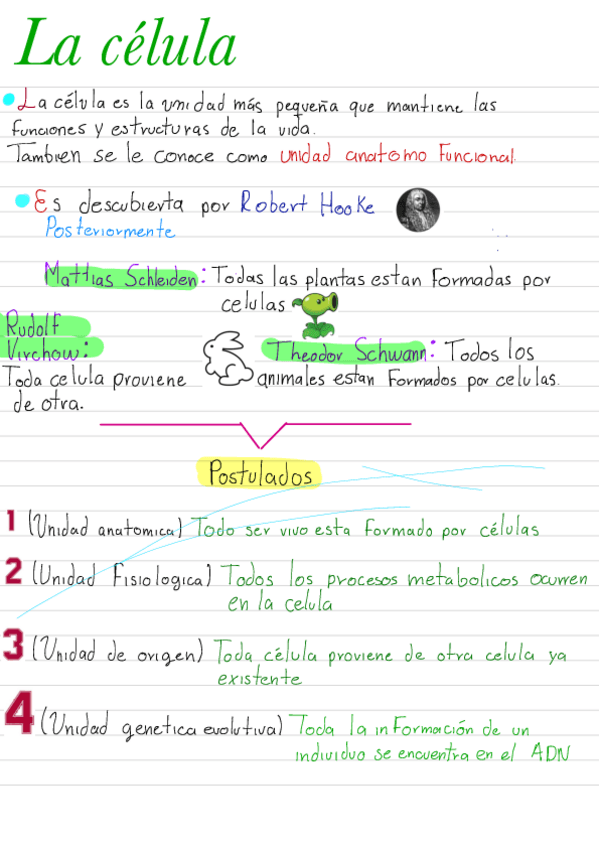 La célula
La célula es la unidad más pequeña que mantiene las
funciones y estructuras de la vida.
Tambien se le conoce como unidad anatomo Funcional.
Es descubierta por Robert Hooke
Posteriormente
Matthias Schleiden: Todas las plantas estan formadas por
celulas
Rudolf
Virchow:
Toda celula proviene
de otra.
Theodor Schwann: Todos los
animales estan Formados por celulas.
Postulados
1 (Unidad anatomica) Todo ser vivo esta Formado por células
2 (Unidad Fisiologica) Todos los procesos metabolicos ocurren
en la celula
3 (Unidad de origen) Toda célula proviene de otra celula ya
existente
4 (Unidad genetica evolutiva) Toda la inFormación de un
individuo se encuentra en el ADN